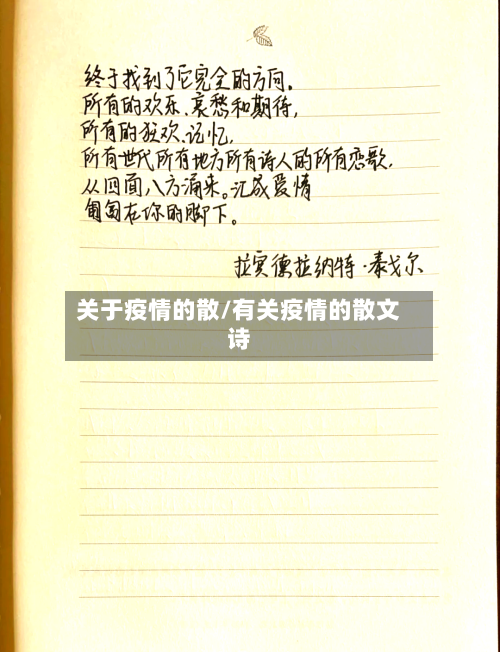 终于找到了它完全的方向。
所有的欢乐、哀愁和期待,
所有的狂欢、记忆,
所有世代所有地方所有诗人的所有恋歌,
从四面八方涌来。汇成爱情
匍匐在你的脚下。
拉宾德拉纳特·泰戈尔
关于疫情的散/有关疫情的散文
诗